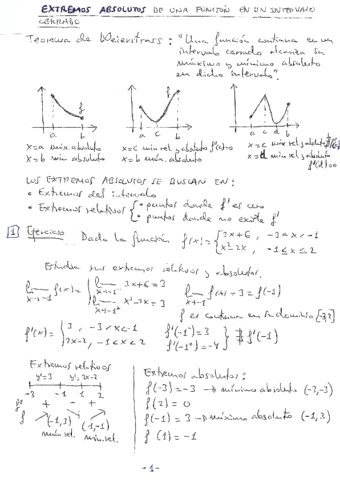 EXTREMOS ABSOLUTOS DE UNA FUNCIÓN EN UN INTERVALO
CERRADO
Teorema de Weierstrass: "Una función continua en un
intervalo cerrado alcanza su
máximo y mínimo absoluto
en dicho intervalo".
f
a b
a c b
a c d b
x=a máx. absoluto
x=b mín absoluto
x=c mín rel y absoluto f'(c)=0
x=b máx. absoluto
x=c máx rel y absoluto
x=d mín rel y absoluto
f'(d)=0
LOS EXTREMOS ABSOLUTOS SE BUSCAN EN:
• Extremos del intervalo
• Extremos relativos { • puntos donde f' es cero
• puntos donde no existe f'
1 Ejercicio Dada la función f(x)= { 3x+6, -3≤x<-1
x²-2x, -1≤x≤2
Estudia sus extremos relativos y absolutos.
lím f(x)= { lím 3x+6=3
x→-1 x→-1⁻
lím x²-2x=3
x→-1⁺
lím f(x)=3=f(-1)
x→-1
f es continua en su dominio [-3,2]
f'(x)= { 3, -3<x<-1
2x-2, -1<x<2
f'(-1⁻)=3
f'(-1⁺)=-4 } ∄f'(-1)
Extremos relativos
y'=3 y'=2x-2
-3 -1 1 2
f' + - +
f (-1,3) (1,-1)
máx rel. mín. rel.
Extremos absolutos:
f(-3)=-3 → mínimo absoluto (-3,-3)
f(2)=0
f(-1)=3 → máximo absoluto (-1,3)
f(1)=-1
-1-